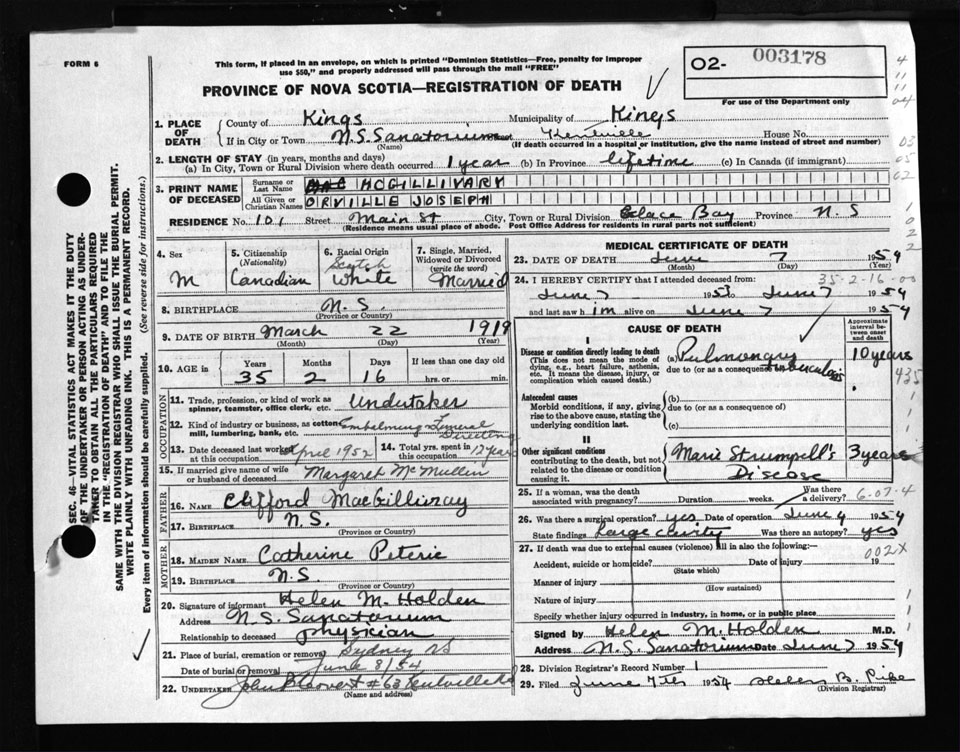 FORM 6
This form, if placed in an envelope, on which is printed "Dominion Statistics—Free, penalty for improper
use $50," and properly addressed will pass through the mail "FREE"
PROVINCE OF NOVA SCOTIA—REGISTRATION OF DEATH
O2- 003178
For use of the Department only
1. PLACE OF DEATH
County of Kings Municipality of Kings
If in City or Town N.S. Sanatorium Kentville House No.
(Name) (If death occurred in a hospital or institution, give the name instead of street and number)
2. LENGTH OF STAY (in years, months and days)
(a) In City, Town or Rural Division where death occurred 1 year (b) In Province lifetime (c) In Canada (if immigrant)
3. PRINT NAME OF DECEASED
Surname or Last Name MCGILLIVARY
All Given or Christian Names ORVILLE JOSEPH
RESIDENCE No. 101 Street Main St City, Town or Rural Division Glace Bay Province N.S
(Residence means usual place of abode. Post Office Address for residents in rural parts not sufficient)
4. Sex M
5. Citizenship (Nationality) Canadian
6. Racial Origin Scotch White
7. Single, Married, Widowed or Divorced (write the word) Married
8. BIRTHPLACE N.S.
(Province or Country)
9. DATE OF BIRTH March 22 1919
(Month) (Day) (Year)
10. AGE in Years 35 Months 2 Days 16 If less than one day old hrs. or min.
OCCUPATION
11. Trade, profession, or kind of work as spinner, teamster, office clerk, etc. Undertaker
12. Kind of industry or business, as cotton mill, lumbering, bank, etc. Embalming Funeral Directing
13. Date deceased last worked at this occupation April 1952
14. Total yrs. spent in this occupation 12 years
15. If married give name of wife or husband of deceased Margaret McMullin
FATHER
16. NAME Clifford MacGillivray
17. BIRTHPLACE N.S.
(Province or Country)
MOTHER
18. MAIDEN NAME Catherine Peterie
19. BIRTHPLACE N.S.
(Province or Country)
20. Signature of informant Helen M. Holden
Address N.S. Sanatorium
Relationship to deceased physician
21. Place of burial, cremation or removal Sydney NS
Date of burial or removal June 8/54
22. UNDERTAKER #63 Kentville NS
(Name and address)
MEDICAL CERTIFICATE OF DEATH
23. DATE OF DEATH June 7 1954
(Month) (Day) (Year)
24. I HEREBY CERTIFY that I attended deceased from: 35-2-16-00
June 7 1953 to June 7 1954
and last saw him alive on June 7 1954
CAUSE OF DEATH
Approximate interval between onset and death
I
Disease or condition directly leading to death
(This does not mean the mode of dying, e.g., heart failure, asthenia, etc. It means the disease, injury, or complication which caused death.)
(a) Pulmonary Tuberculosis 10 years
due to (or as a consequence of) 435
Antecedent causes
Morbid conditions, if any, giving rise to the above cause, stating the underlying condition last.
(b)
due to (or as a consequence of)
(c)
II
Other significant conditions contributing to the death, but not related to the disease or condition causing it.
Marie Strumpell's Disease 3 years
25. If a woman, was the death associated with pregnancy? Duration weeks. Was there a delivery? 6-07-4
26. Was there a surgical operation? yes Date of operation June 4 1954
State findings Large cavity Was there an autopsy? yes
27. If death was due to external causes (violence) fill in also the following:— 002X
Accident, suicide or homicide? Date of injury 19
(State which)
Manner of injury
(How sustained)
Nature of injury
Specify whether injury occurred in industry, in home, or in public place
Signed by Helen M. Holden M.D.
Address N.S. Sanatorium Date June 7 1954
28. Division Registrar's Record Number 1
29. Filed June 7th 1954 Helen B. Pike
(Division Registrar)
SEC. 46—VITAL STATISTICS ACT MAKES IT THE DUTY
OF THE UNDERTAKER OR PERSON ACTING AS UNDER-
TAKER TO OBTAIN ALL THE PARTICULARS REQUIRED
IN THE "REGISTRATION OF DEATH" AND TO FILE THE
SAME WITH THE DIVISION REGISTRAR WHO SHALL ISSUE THE BURIAL PERMIT.
WRITE PLAINLY WITH UNFADING INK. THIS IS A PERMANENT RECORD.
Every item of information should be carefully supplied. (See reverse side for instructions.)